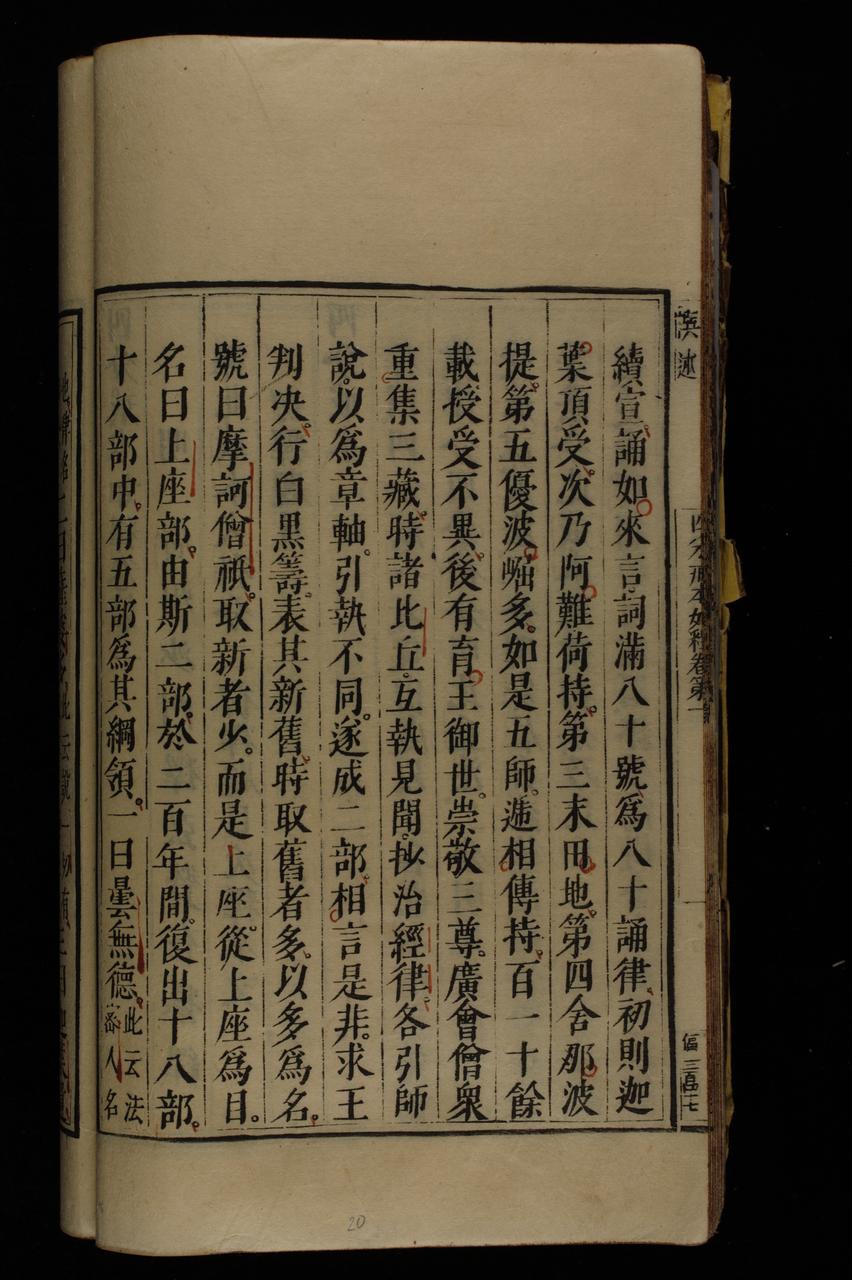 續宣誦如來言詞滿八十號爲八十誦律初則迦
葉頂受次乃阿難荷持第三末田地第四舍那波
提第五優波崛多如是五師遞相傳持百一十餘
載授受不異後有育王御世崇敬三尊廣會僧衆
重集三藏時諸比丘互執見聞抄治經律各引師
說以爲章軸引執不同遂成二部相言是非求王
判決行白黑籌表其新舊時取舊者多以多爲名
號曰摩訶僧祇取新者少而是上座從上座爲目
名曰上座部由斯二部於二百年間復出十八部
十八部中有五部爲其綱領一曰曇無德此云法
密人名
20